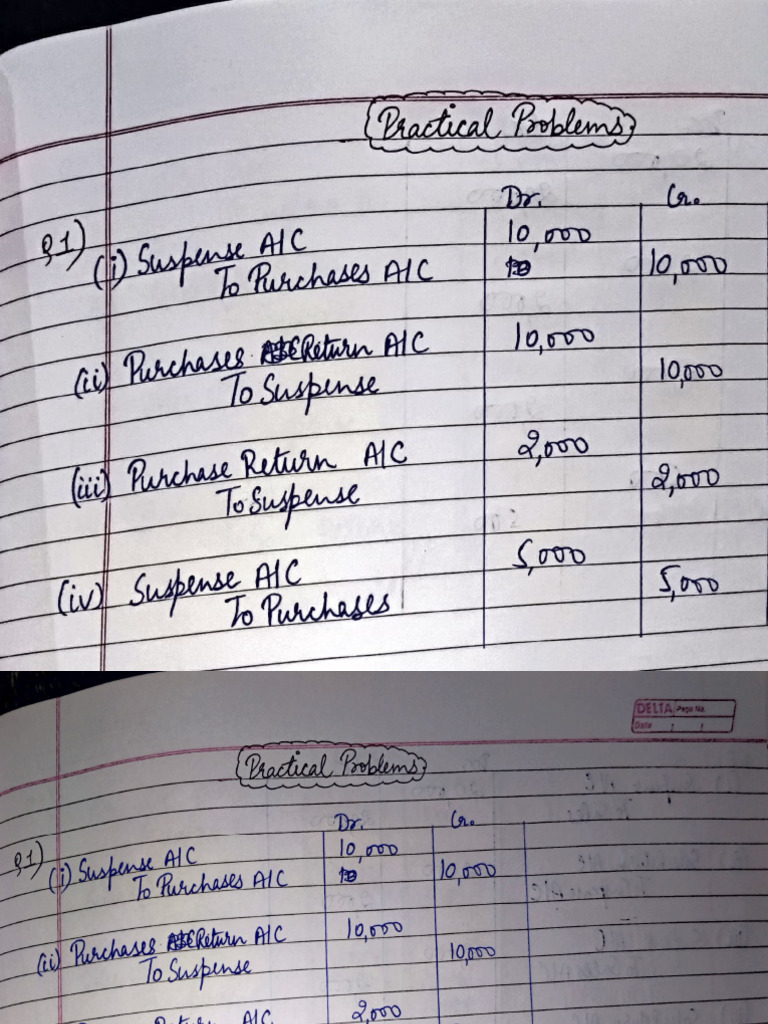 Practical Problems
Dr. Cr.
Q1) (i) Suspense A/C 10,000
To Purchases A/C 10,000
(ii) Purchases Return A/C 10,000
To Suspense 10,000
(iii) Purchase Return A/C 2,000
To Suspense 2,000
(iv) Suspense A/C 5,000
To Purchases 5,000
DELTA Page No.
Date / /
Practical Problems
Dr. Cr.
Q1) (i) Suspense A/C 10,000
To Purchases A/C 10,000
(ii) Purchases Return A/C 10,000
To Suspense 10,000
Return A/C 2,000